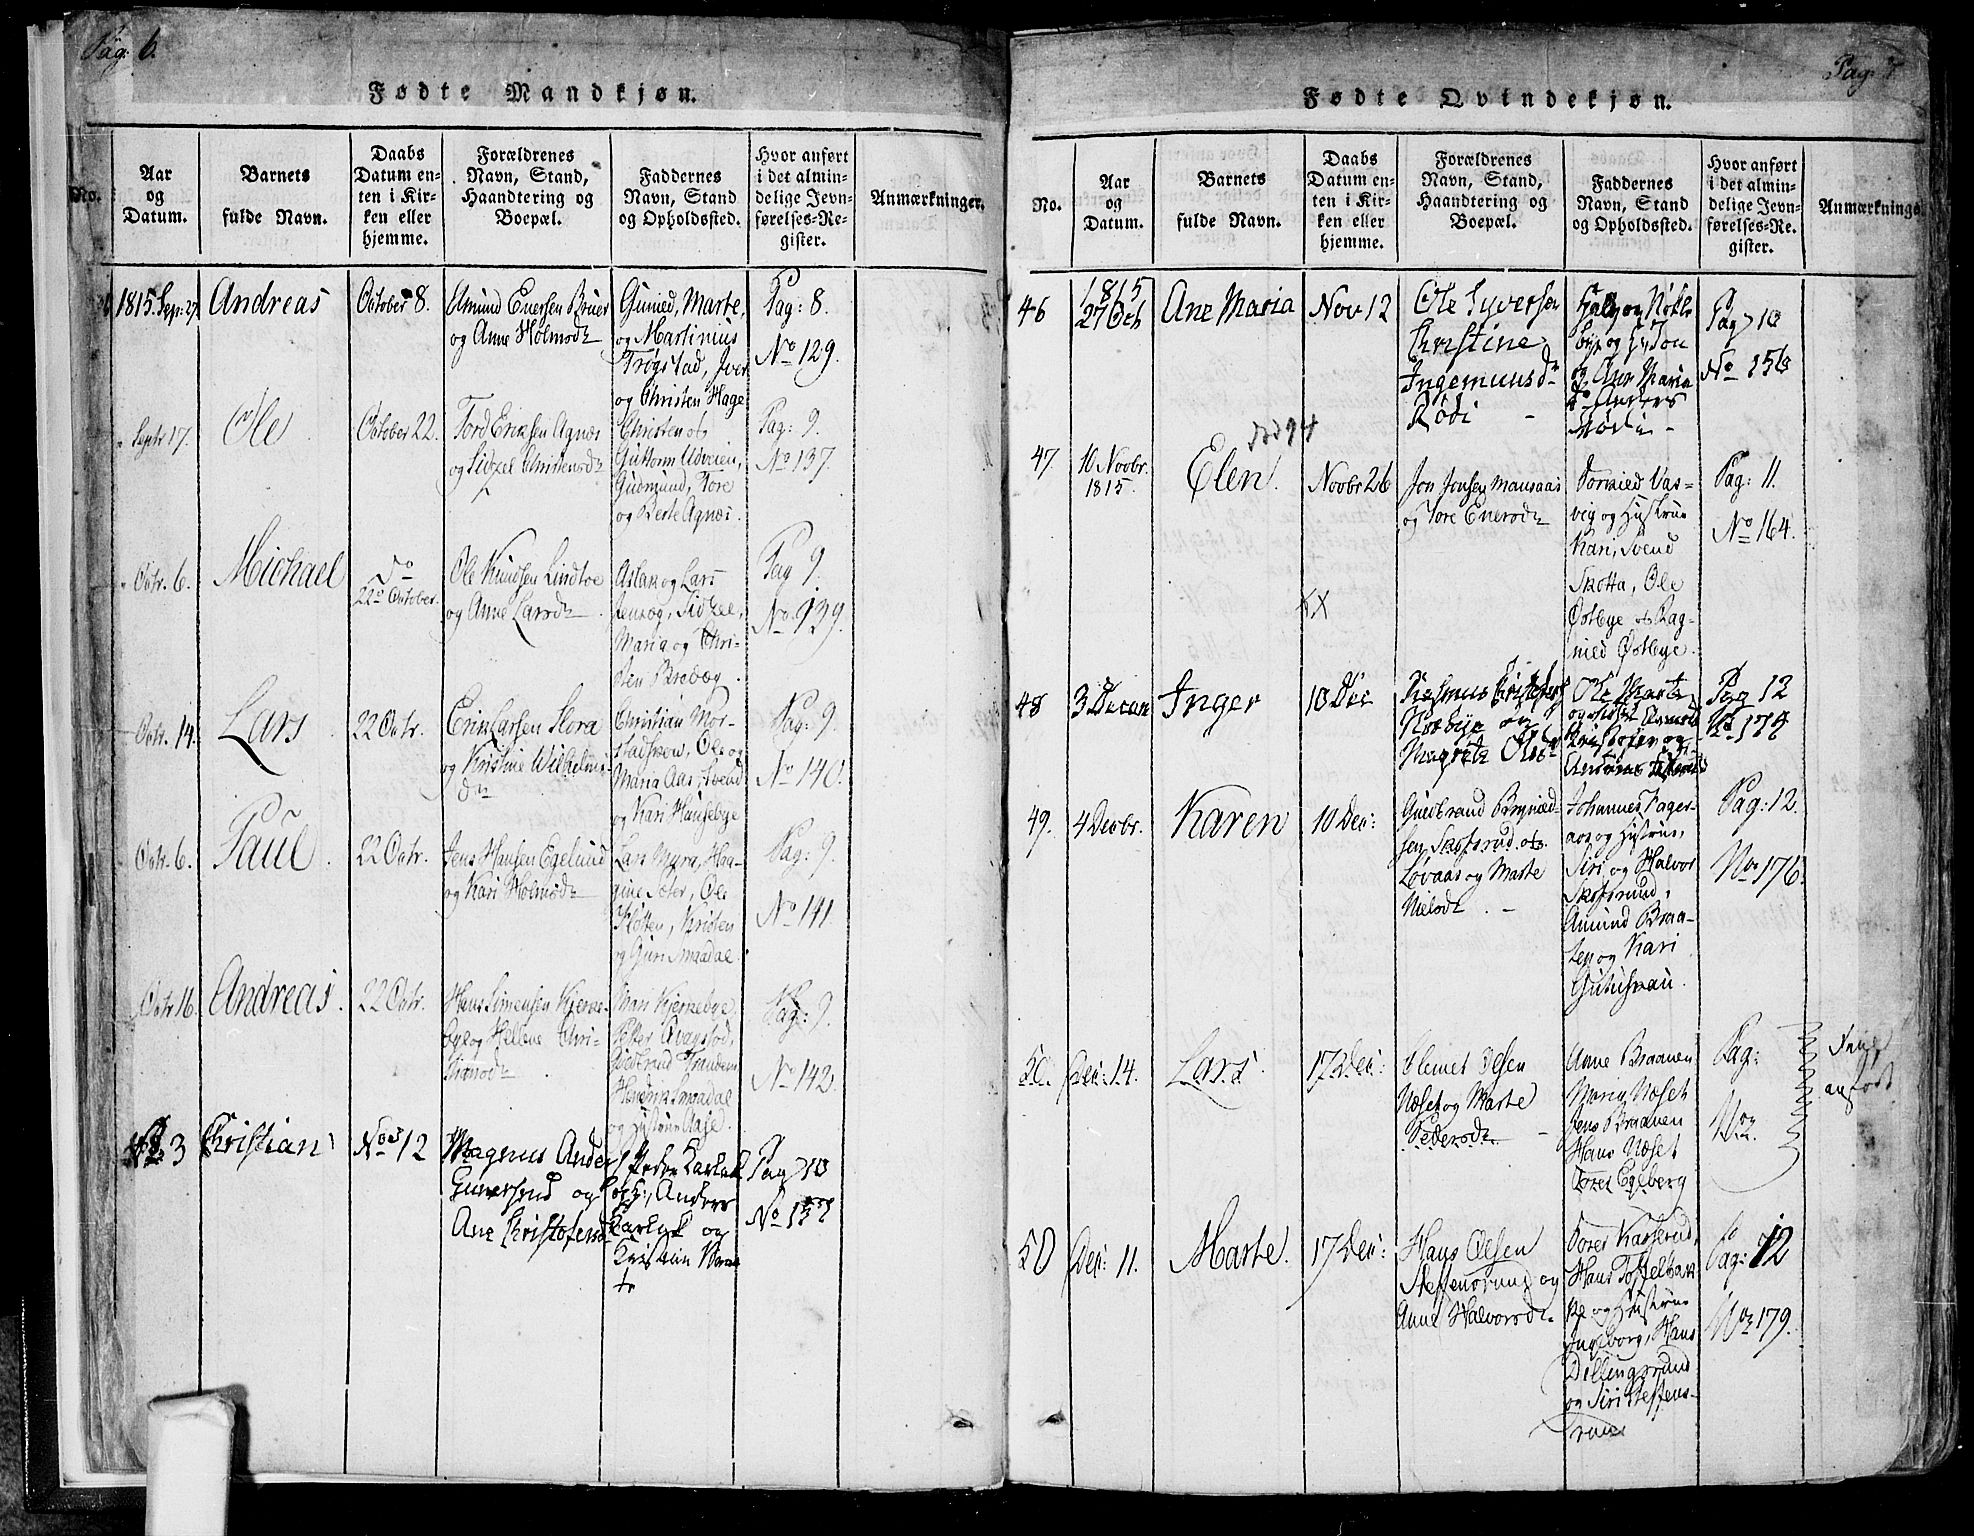 Pag: 6.
Fødte Mandkjøn.
No.
Aar
og
Datum.
Barnets
fulde Navn.
Daabs
Datum en-
ten i Kir-
ken eller
hjemme.
Forældrenes
Navn, Stand,
Haandtering og
Boepæl.
Faddernes
Navn, Stand
og Opholdssted.
Hvor anført
i det almin-
delige Jevn-
førelses-Re-
gister.
Anmærkninger.
1815. Sep: 27
Andreas
October 8.
Amund Enersen Bruer
og Anne Holmsdr
Gunied, Marte,
og Martinius
Trøgstad, Iver
og Christen Hage
Pag: 8.
No 129.
Septr 17.
Ole
October 22.
Tord Eriksen Agnæs
og Sidzel Christensdr
Christen og
Guttorm Udveien,
Gudmund, Tore
og Berte Agnæs.
Pag: 9.
No 137.
Octr. 6.
Michael
Do
22de October.
Ole Knudsen Lindtoe
og Anne Larsdr
Aslak og Lars
Sidzel,
Maria og Chri-
sten Brevog.
Pag 9.
No 139.
Octr. 14.
Lars
22 Octr.
Erik Larsen Slora
og Kristine Wilhelms-
dr
Christian Mor-
stadsveen, Ole og
Maria Aas, Svend
og Kari Hausebye
Pag: 9.
No 140.
Octr. 6.
Paul.
22 Octr.
Jens Hansen Egelund
og Kari Holmsdr
Lars Myra, Haa-
gine Sæter, Ole
Kløtten, Kristen
og Guri Smaadal
Pag: 9.
No 141.
Octr 16.
Andreas.
22 Octr.
Hans Simensen Kjerne-
bye og Hellene Chri-
stiansdr
Mari Kjernebye
Petter
Gudbrand Trandem
Hendrik Smaadal
og Hustrue Aase.
Pag: 9.
No 142.
3
Christian
Nov 12
Magnus Ander
og
Ane Christofersd
Peder Karlsek
og H:, Anders
Karlsek og
Kristian
Pag 10
No 157
Pag: 7
Fødte Qvindekjøn.
No.
Aar
og
Datum.
Barnets
fulde Navn.
Daabs
Datum en-
ten i Kir-
ken eller
hjemme.
Forældrenes
Navn, Stand,
Haandtering og
Boepæl.
Faddernes
Navn, Stand
og Opholdssted.
Hvor anført
i det almin-
delige Jevn-
førelses-Re-
gister.
Anmærkninge
46
1815
27 Oct
Ane Maria
Nov 12
Ole Syversen
Christine
Ingemunsdr
Rødi -
og
og
og Ane Maria
Anders
Rødi -
Pag 10
No 156
47.
10 Novbr.
1815.
Elen.
Novbr 26
Jon Jonsen Mausaas
og Tore Enersdr
Tormied Vas-
vig og Hustrue
Kari, Svend
Skotta, Ole
Østbye og Rag-
nied Østbye.
Pag: 11.
No 164.
XX
48
3 Decem
Inger
10 Dec
Rasmus Christofers
Norbye og
Magrete Olsdr
Ole
Kristofer og
Pag 12
No 174
49.
4 Decbr.
Karen
10 Dec:
Gudbrand Brynied-
sen Skofsrud og
Løvaas og Marte
Nielsdr. -
Johannes Fager-
aas og Hustrue,
Siri og Halvor
Skofsrund,
Amund Braa-
ten og Kari
Pag: 12.
No 176.
50.
Dec: 14.
Lars.
17 Dec:
Clemet Olsen
Næset og Marte
Pedersdr. -
Anne Braanen
Maria Næset
Jens Braanen
Hans Næset
Tores Egeberg
Pag:
No
anført
50
Dec: 11.
Marte.
17 Dec:
Hans Olsen
Steffensrund og
Anne Halvorsdr.
Tores Kasserud,
Hans Toffelbak-
ke og Hustrue
Ingeborg, Hans
Dillingsrund
og Siri Steffens-
rune
Pag: 12
No 179.